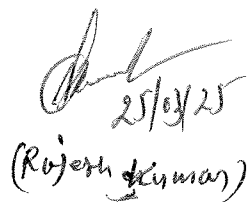 25/03/25
(Rajesh Kumar)